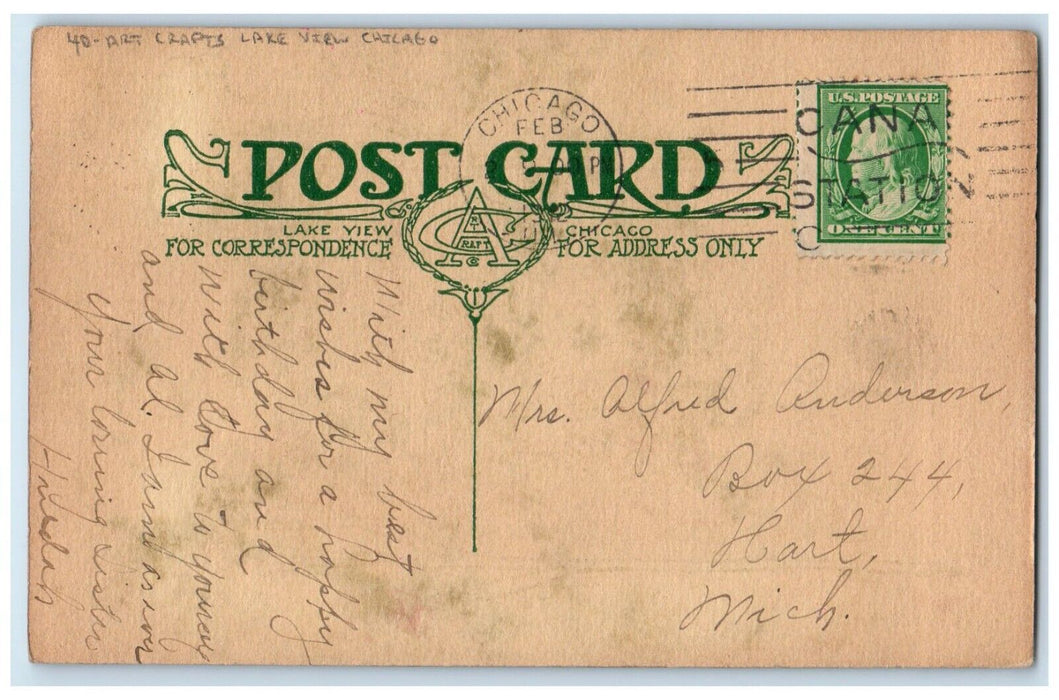 40- ART CRAFTS LAKE VIEW CHICAGO
CHICAGO
FEB
U.S. POSTAGE
CANA
STATIO
ONE CENT
POST CARD
LAKE VIEW CHICAGO
FOR CORRESPONDENCE FOR ADDRESS ONLY
ART
CRAFT
Co
With my best
wishes for a happy
birthday and
with love to you
and Al. I am as ever
your loving sister
Huldah
Mrs. Alfred Anderson,
Box 244,
Hart,
Mich.